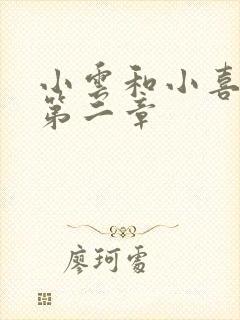 小雪和小喜
第二章
廖珂雪